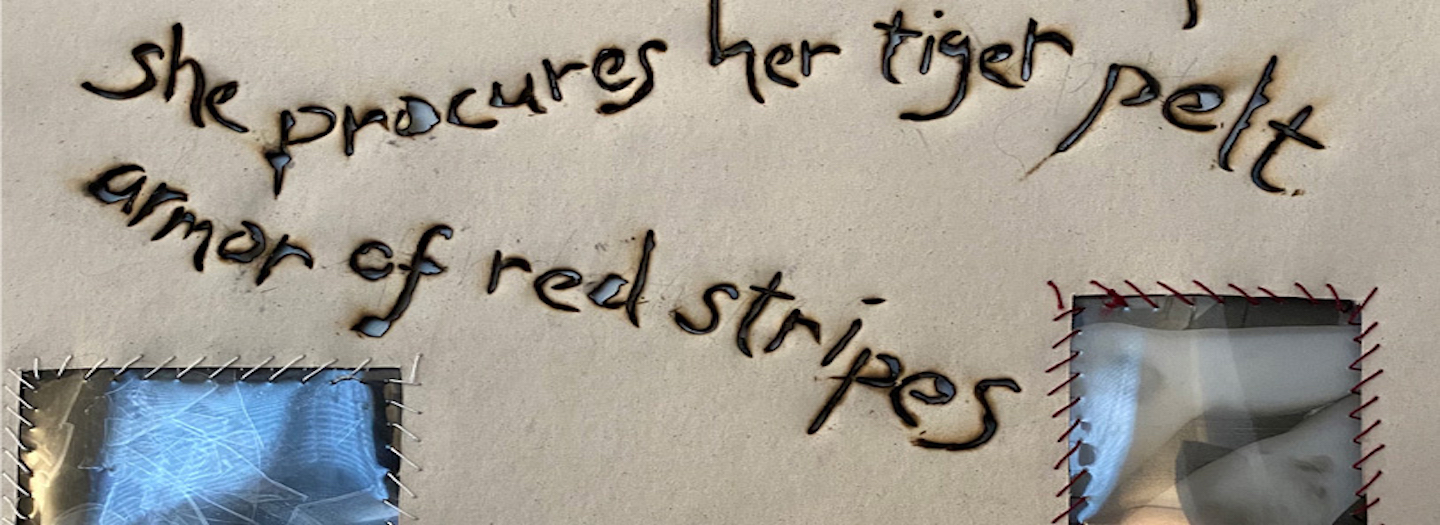 she procures her tiger pelt.
armor of red stripes